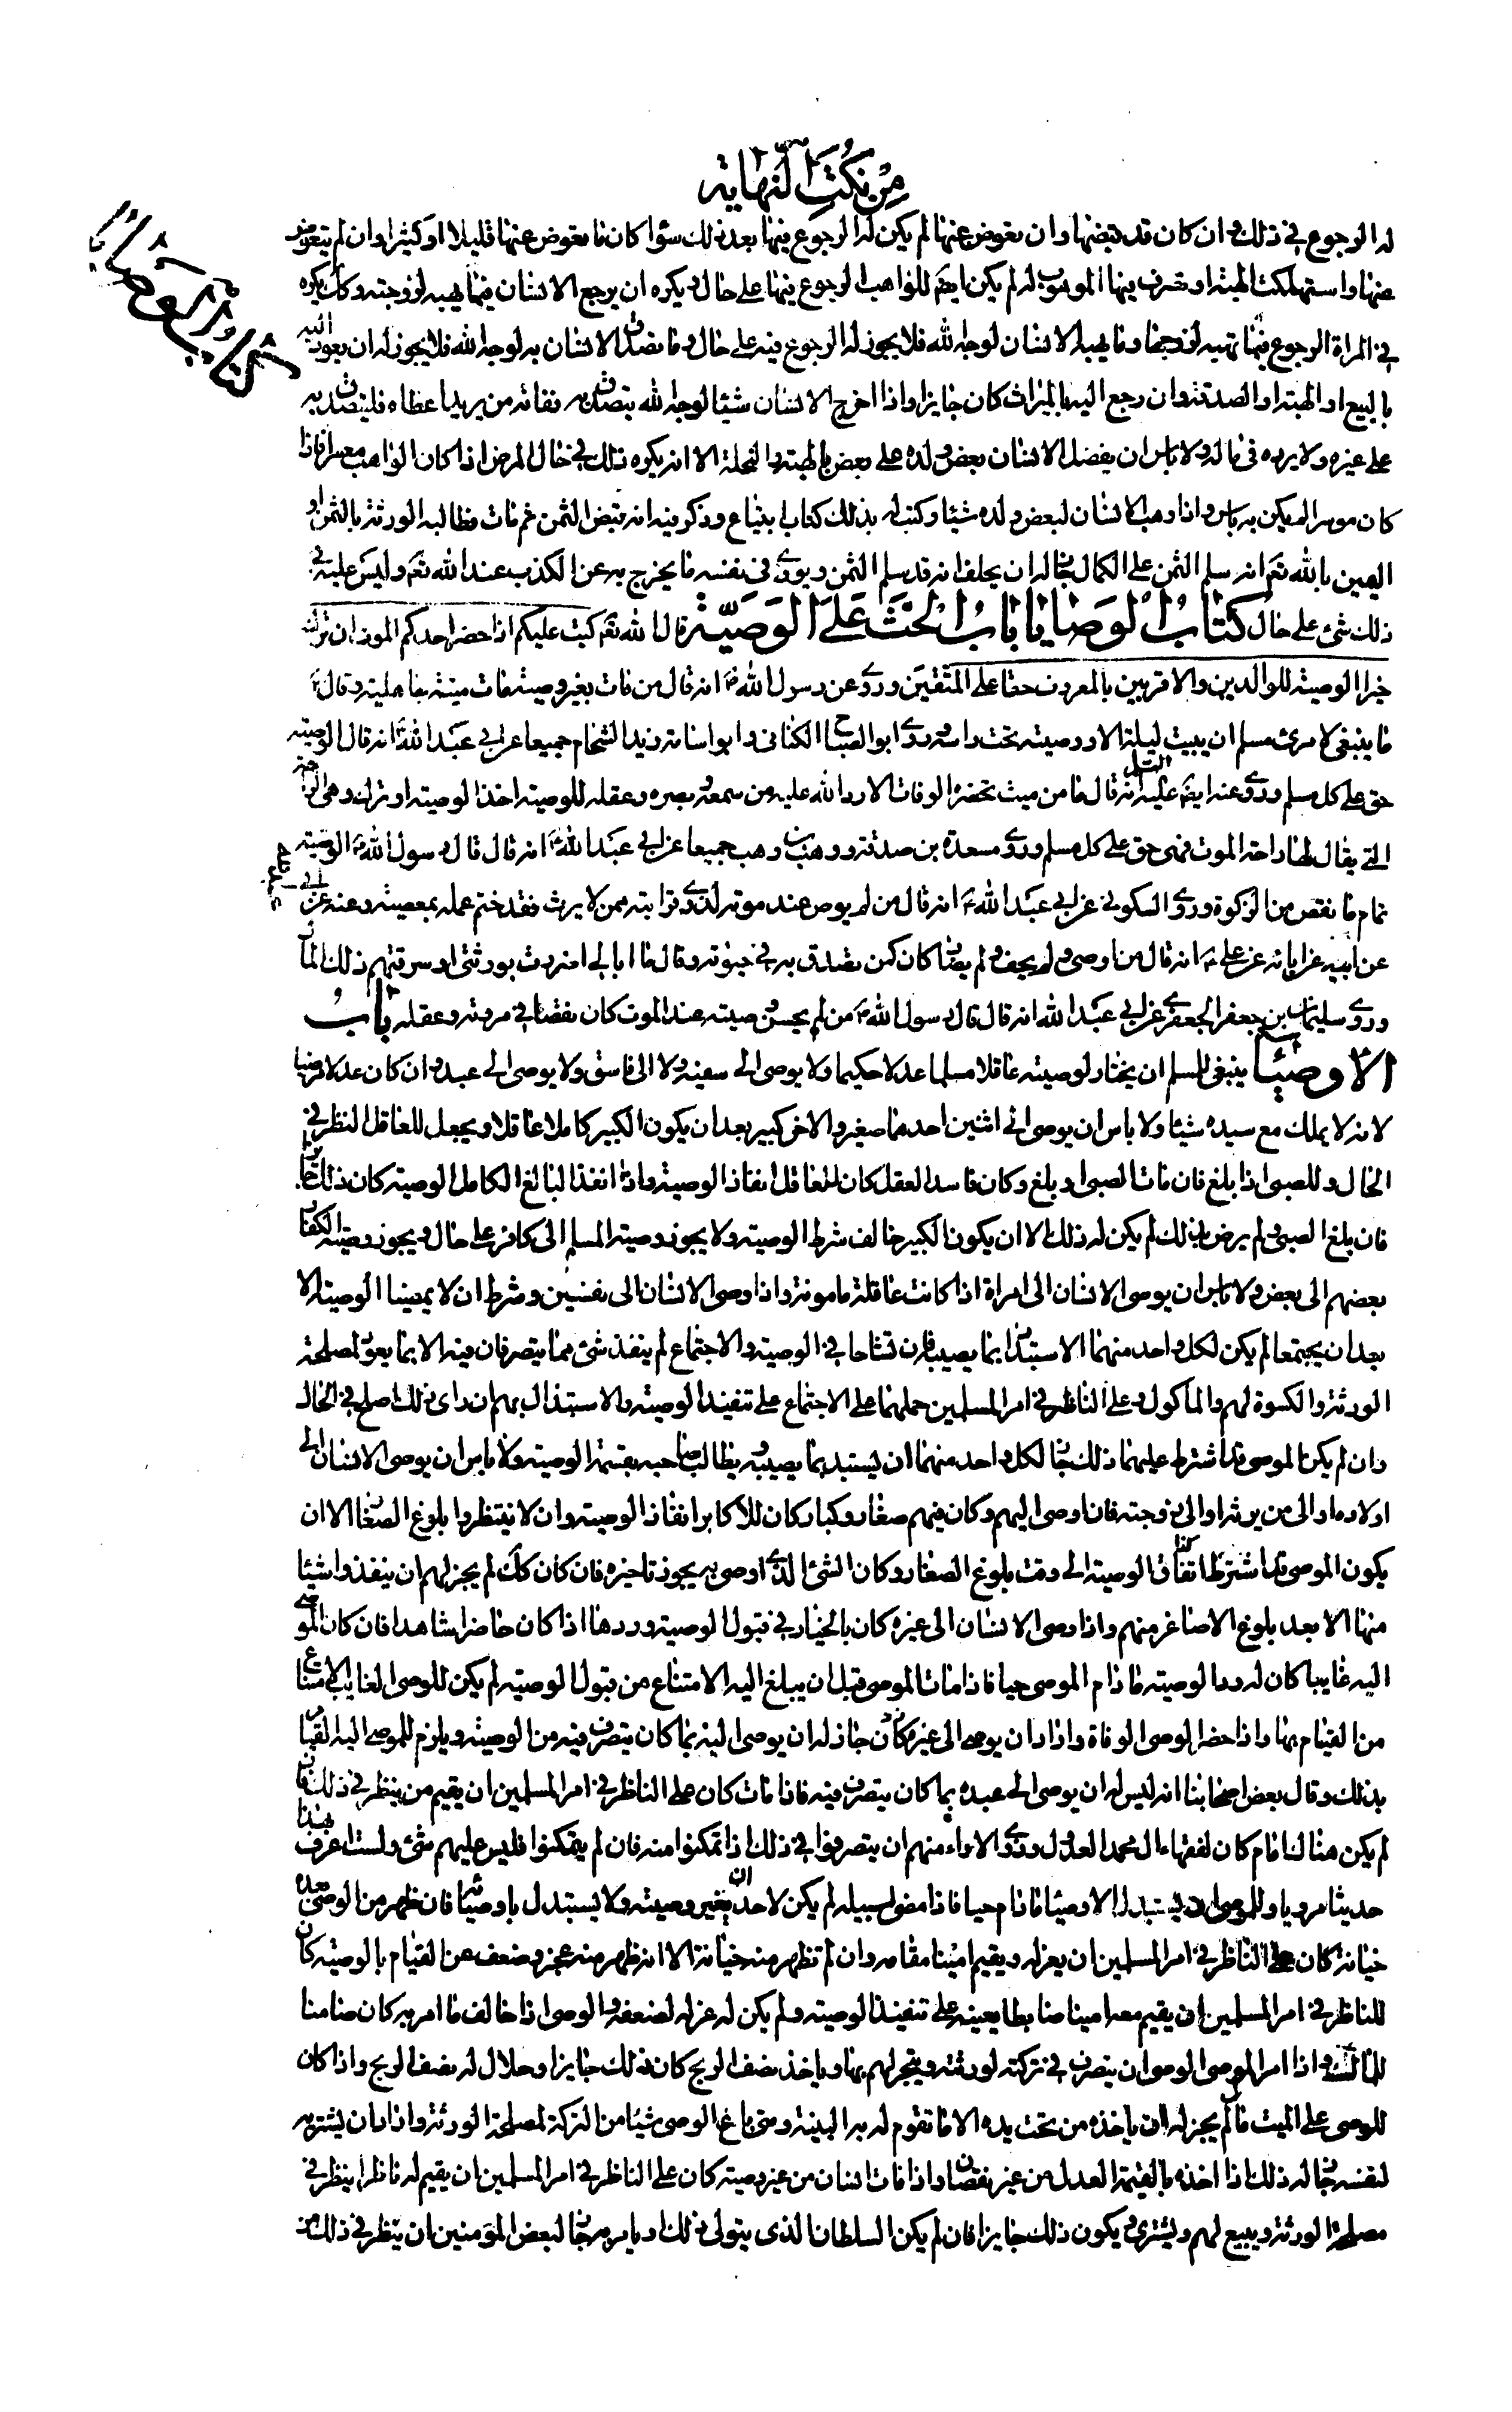 مِنْ نُكَتِ النّهَايَة
كتاب الوصايا
له الرجوع في ذلك وان كان قد قبضها وان تعوض عنها لم يكن له الرجوع فيها بعد ذلك سواء كان ما تعوض عنها قليلا او كثيرا وان لم يتعوض
عنها واستهلكت الهبة او تصرف فيها الموهوب له لم يكن ايضا للواهب الرجوع فيها على حال ويكره ان يرجع الانسان فيما يهبه لزوجته وكك يكره
في المراة الرجوع فيما تهبه لزوجها وما يهبه الانسان لوجه الله فلا يجوز له الرجوع فيه على حال وما تصدق الانسان به لوجه الله فلا يجوز له ان يعود اليه
بالبيع او الهبة او الصدقة وان رجع اليه بالميراث كان جايزا واذا اخرج الانسان شيئا لوجه الله يتصدق به ففاته من يريد اعطاه فليتصدق به
على غيره ولا يرده في ماله ولا باس ان يفضل الانسان بعض ولده على بعض بالهبة والنحلة الا انه يكره ذلك في حال المرض اذا كان الواهب معسرا فاذا
كان موسرا لم يكن به باس واذا وهب الانسان لبعض ولده شيئا وكتب له بذلك كتاب ابتياع وذكر فيه انه قبض الثمن ثم مات فطالبه الورثة بالثمن او
اليمين بالله تعم انه سلم الثمن على الكمال جاز له ان يحلف انه قد سلم الثمن ويورى في نفسه ما يخرج به عن الكذب عند الله تعم وليس عليه في
ذلك شئ على حال كتاب الوصايا باب الحث على الوصية قال الله تعم كتب عليكم اذا حضر احدكم الموت ان ترك
خيرا الوصية للوالدين والاقربين بالمعروف حقا على المتقين وروى عن رسول الله ص انه قال من مات بغير وصية مات ميتة جاهلية وقال ع
ما ينبغي لامرئ مسلم ان يبيت ليلة الا ووصيته تحت راسه وروى ابو الصباح الكناني وابو اسامة زيد الشحام جميعا عن ابي عبد الله ع انه قال الوصية
حق على كل مسلم وروى عنه ايضا عليه السلم انه قال ما من ميت تحضره الوفاة الا رد الله عليه من سمعه وبصره وعقله للوصية اخذ الوصية او ترك وهي الراحة
التي يقال لها راحة الموت فهي حق على كل مسلم وروى مسعدة بن صدقة ووهب بن وهب جميعا عن ابي عبد الله ع انه قال قال رسول الله ص الوصية
تمام ما نقص من الزكوة وروى السكوني عن ابي عبد الله ع انه قال من لم يوص عند موته لذوي قرابته ممن لا يرث فقد ختم عمله بمعصية وعنه عن ابي
عبد الله
عن ابيه عن ابائه عن علي ع انه قال من اوصى ولم يحف ولم يضار كان كمن تصدق به في حيوته وقال ما ابالي اضررت بورثتي او سرقتهم ذلك المال
وروى سليمان بن جعفر الجعفري عن ابي عبد الله انه قال قال رسول الله ص من لم يحسن وصيته عند الموت كان نقصا في مروته وعقله باب
الاوصياء ينبغي للمسلم ان يختار لوصيته عاقلا مسلما عدلا حكيما ولا يوصى الى سفيه ولا الى فاسق ولا يوصى الى عبد وان كان عدلا مرضيا
لانه لا يملك مع سيده شيئا ولا باس ان يوصى الى اثنين احدهما صغير والاخر كبير بعد ان يكون الكبير كاملا عاقلا ويجعل للعاقل النظر في
الحال وللصبي اذا بلغ فان مات الصبي او بلغ وكان فاسد العقل كان للعاقل انفاذ الوصية واذا انفذ البالغ الكامل الوصية كان ذلك جايزا
فان بلغ الصبي ولم يرض بذلك لم يكن له ذلك الا ان يكون الكبير خالف شرط الوصية ولا يجوز وصية المسلم الى كافر على حال ويجوز وصية الكفار
بعضهم الى بعض ولا باس ان يوصى الانسان الى امراة اذا كانت عاقلة مامونة واذا اوصى الانسان الى نفسين وشرط ان لا يمضيا الوصية الا
بعد ان يجتمعا لم يكن لكل واحد منهما الاستبداد بما يصيبه فان تشاحا في الوصية والاجتماع لم ينفذ شئ مما يتصرفان فيه الا بما يعود بمصلحة
الورثة والكسوة لهم والماكول وعلى الناظر في امر المسلمين حملهما على الاجتماع على تنفيذ الوصية والاستبدال بهم ان راى ذلك اصلح في الحال
وان لم يكن الموصى قد اشترط عليهما ذلك جاز لكل واحد منهما ان يستبد بما يصيبه ويطالب صاحبه بقسمة الوصية ولا باس ان يوصى الانسان الى
اولاده او الى من يرثه او الى زوجته فان اوصى اليهم وكان فيهم صغار وكبار كان للاكابر انفاذ الوصية وان لا ينتظروا بلوغ الصغار الا ان
يكون الموصى قد اشترط انفاذ الوصية الى وقت بلوغ الصغار وكان الشئ الذي اوصى به يجوز تاخيره فان كان كك لم يجز لهم ان ينفذوا شيئا
منها الا بعد بلوغ الاصاغر منهم واذا وصى الانسان الى غيره كان بالخيار في قبول الوصية وردها اذا كان حاضرا شاهدا فان كان الموصى
اليه غايبا كان له رد الوصية ما دام الموصى حيا فاذا مات الموصى قبل ان يبلغ اليه الامتناع من قبول الوصية لم يكن للوصي الغايب الامتناع
من القيام بها واذا حضر الوصي الوفاة واراد ان يوصى الى غيره جاز له ان يوصى اليه بما كان يتصرف فيه من الوصية ويلزم للموصى اليه القيام
بذلك وقال بعض اصحابنا انه ليس له ان يوصى الى غيره بما كان يتصرف فيه فاذا مات كان على الناظر في امر المسلمين ان يقيم من ينظر في ذلك فان
لم يكن هناك امام كان لفقهاء ال محمد العدول وذوي الاراء منهم ان يتصرفوا في ذلك اذا تمكنوا منه فان لم يتمكنوا فليس عليهم شئ ولست اعرف بهذا
حديثا مرويا وللموصى ان يستبدل الاوصياء ما دام حيا فاذا مضى لسبيله لم يكن لاحد ان يغير وصيته ولا يستبدل باوصيائه فان ظهر من الوصي بعده
خيانة كان على الناظر في امر المسلمين ان يعزله ويقيم امينا مقامه وان لم تظهر منه خيانة الا انه ظهر منه عجز وضعف عن القيام بالوصية كان
للناظر في امر المسلمين ان يقيم معه امينا ضابطا يعينه على تنفيذ الوصية ولم يكن له عزله لضعفه والوصي اذا خالف ما امر به كان ضامنا
للمال واذا امر الموصى الوصي ان يتصرف في تركته لورثته ويتجر لهم بها وياخذ نصف الربح كان ذلك جايزا وحلال له نصف الربح واذا كان
للوصي على الميت مال لم يجز له ان ياخذه من تحت يده الا ما تقوم له به البينة ومتى باع الوصي شيئا من التركة لمصلحة الورثة واراد ان يشتريه
لنفسه جاز له ذلك اذا اخذه بالقيمة العدل من غير نقصان واذا مات انسان من غير وصية كان على الناظر في امر المسلمين ان يقيم له ناظرا ينظر في
مصلحة الورثة ويبيع لهم ويشترى ويكون ذلك جايزا فان لم يكن السلطان الذي يتولى ذلك او يامر به جاز لبعض المؤمنين ان ينظر في ذلك من